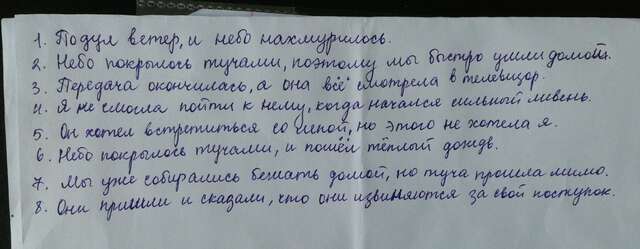 1. Подул ветер, и небо нахмурилось.
2. Небо покрылось тучами, поэтому мы быстро ушли домой.
3. Передача окончилась, а она всё смотрела в телевизор.
4. Я не смогла пойти к нему, когда начался сильный ливень.
5. Он хотел встретиться со мной, но этого не хотела я.
6. Небо покрылось тучами, и пошёл тёплый дождь.
7. Мы уже собирались бежать домой, но туча прошла мимо.
8. Они пришли и сказали, что они извиняются за свой поступок.